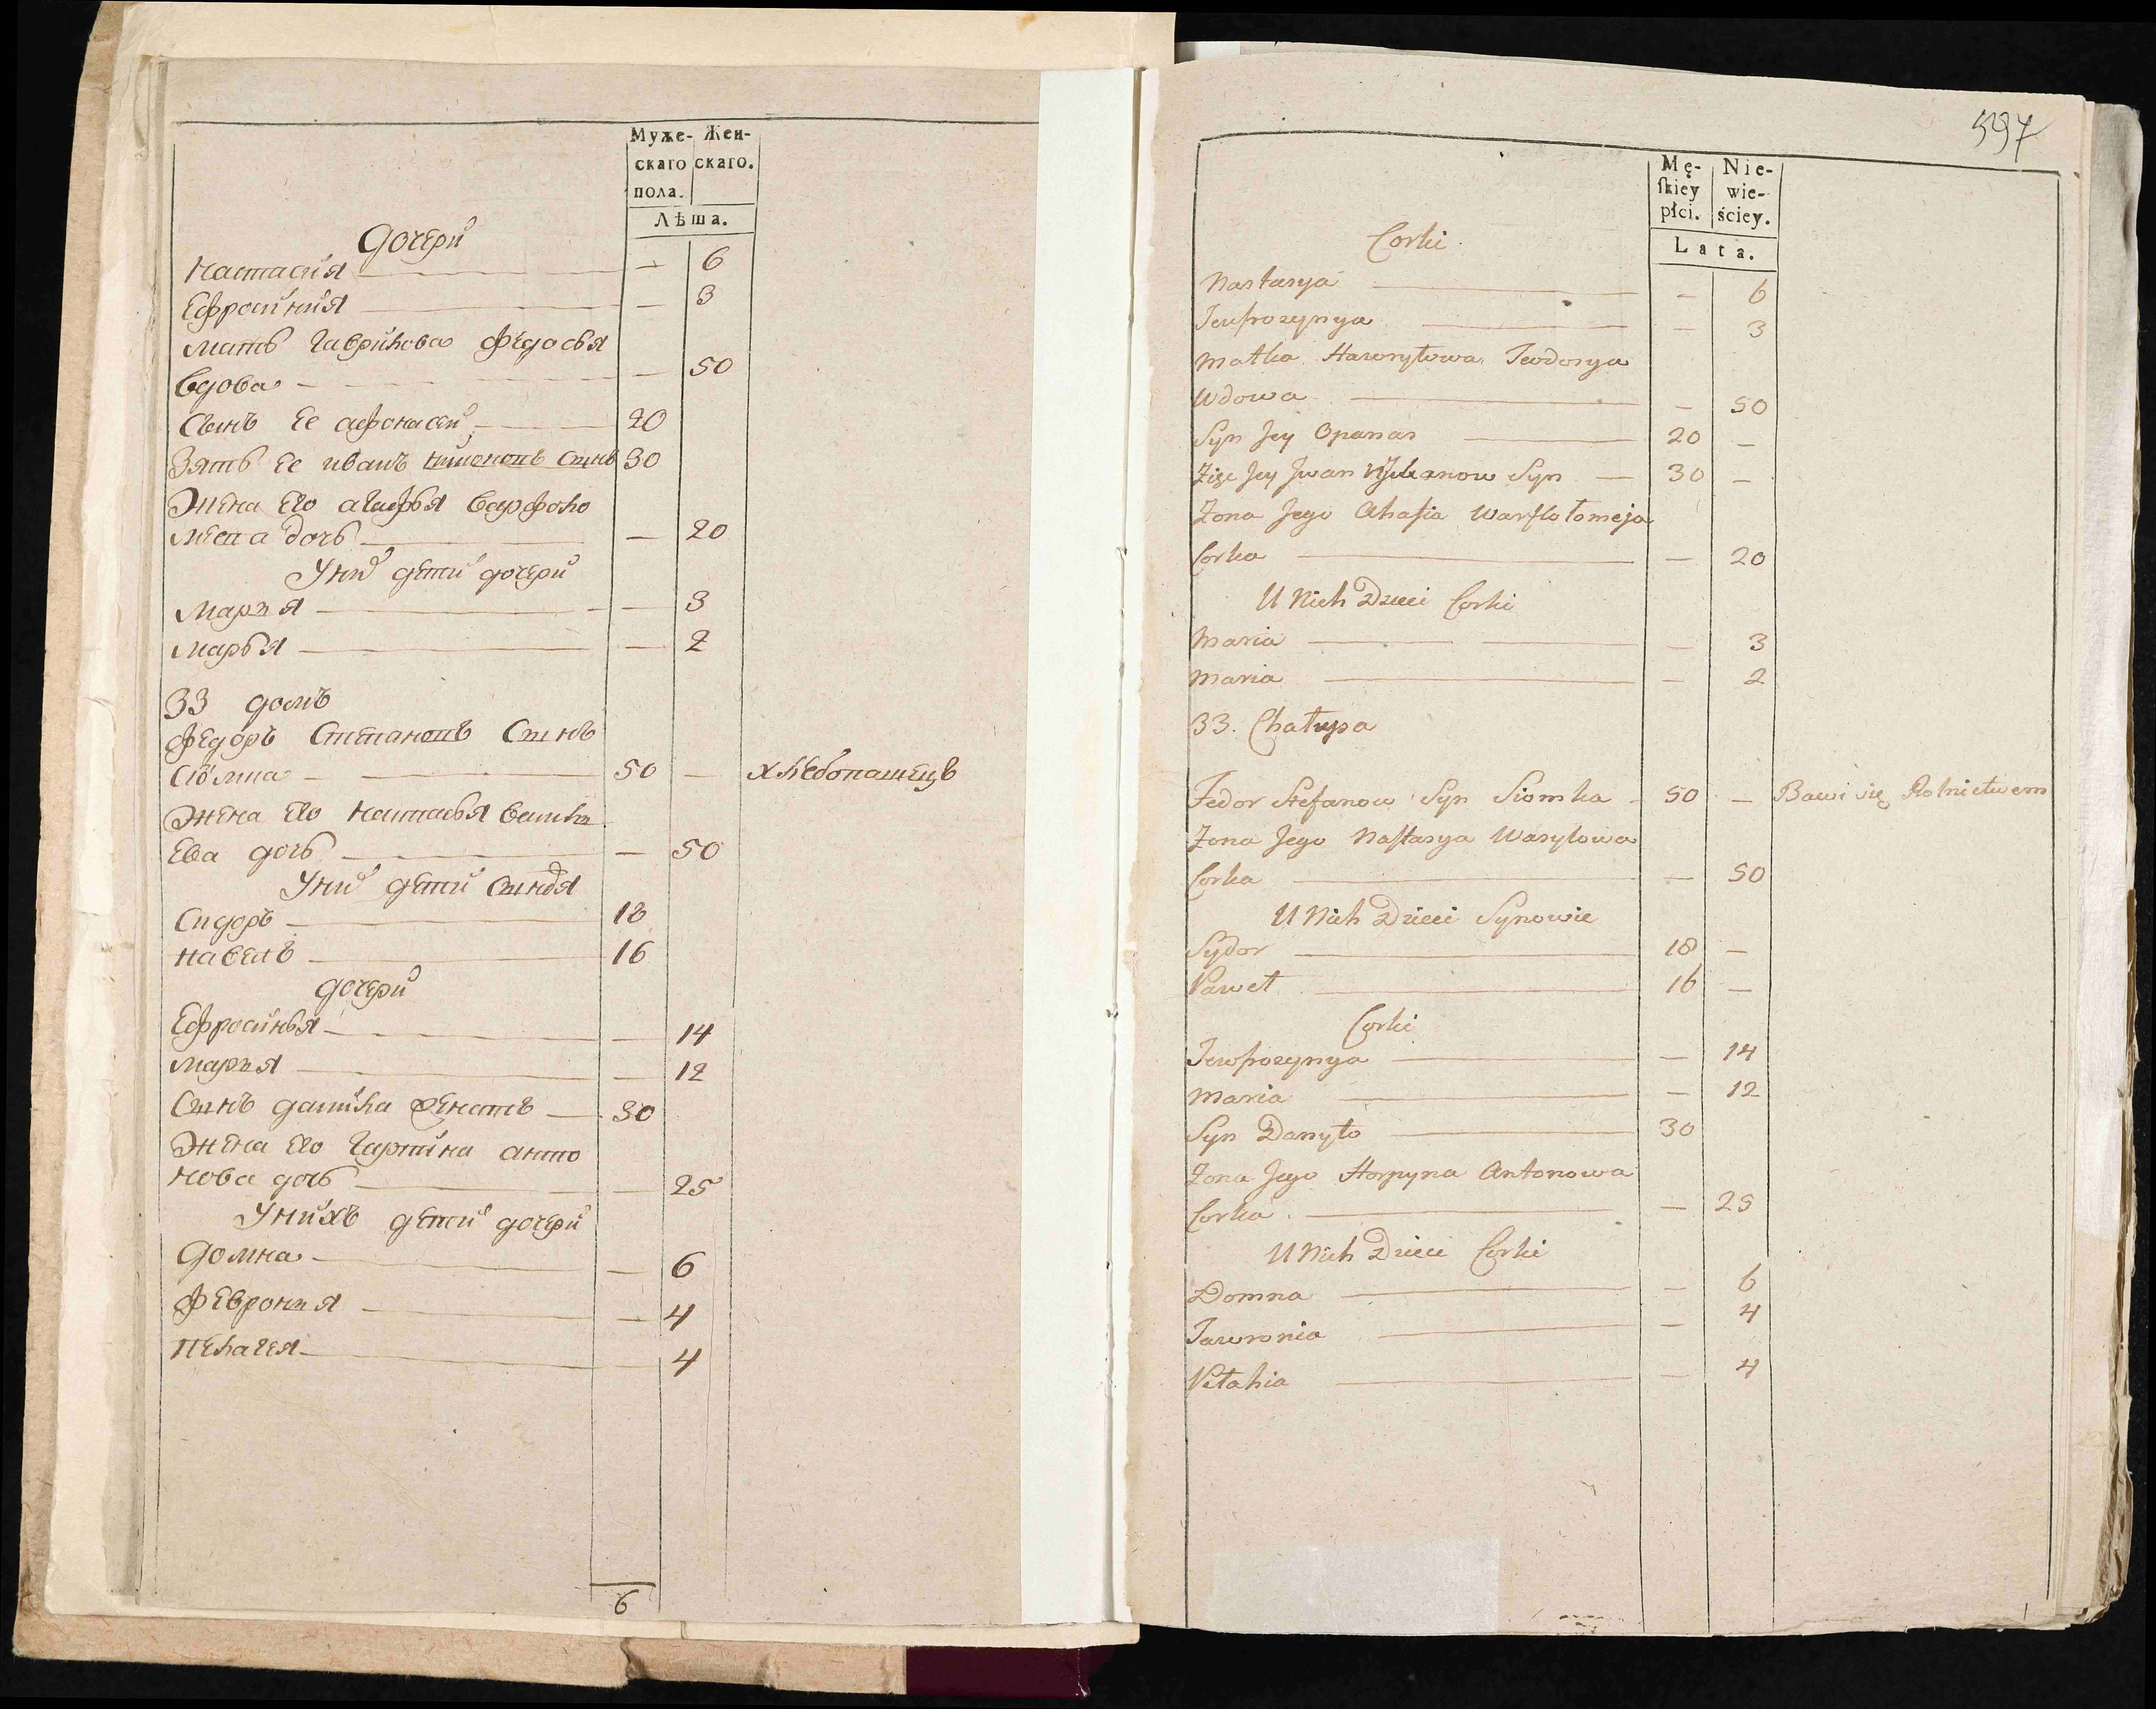 Муже- Жен-
скаго скаго.
пола.
Лѣта.
Дочери
Настасия — 6
Ефросиния — 3
мать Гаврилова Федосья
вдова — 50
Сынъ Ее афонасей 20
Зять Ее иванъ Сынъ 30
Жена Его агафья варфоло
меева дочь — 20
У них дети дочери
Марья — 3
марья — 2
33 домъ
Федоръ Степановъ Сынъ
Сіомка 50 — хлебопашецъ
Жена Его настасья васил
Ева дочь — 50
У них дети Сыновья
Сидоръ 18
павелъ 16
дочери
Ефросинья — 14
марья — 12
Сынъ данила женатъ 30
Жена Его Гарпина анто
нова дочь — 25
У нихъ дети дочери
Домна — 6
Февронья — 4
пелагея — 4
6
597
Mę- Nie-
skiey wie-
płci. ściey.
Lata.
Corki
Nastasya — 6
Jewfrozynya — 3
Matka Hawryłowa Teodosya
Wdowa — 50
Syn Jey Opanas 20 —
Zięć Jey Iwan Syn 30 —
Zona Jego Ahafia Warfłołomeja
Corka — 20
U Nich Dzieci Corki
Maria — 3
Maria — 2
33. Chałupa
Fedor Stefanow Syn Siomka 50 — Bawi się Rolnictwem
Zona Jego Nastasya Wasylowa
Corka — 50
U Nich Dzieci Synowie
Sydor 18 —
Paweł 16 —
Corki
Jewfrozynya — 14
Maria — 12
Syn Danyło 30
Zona Jego Horpyna Antonowa
Corka — 25
U Nich Dzieci Corki
Domna — 6
Jawronia — 4
Pełahia — 4